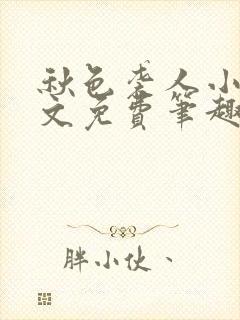 秋色素人小
文免費筆趣
胖小伙、